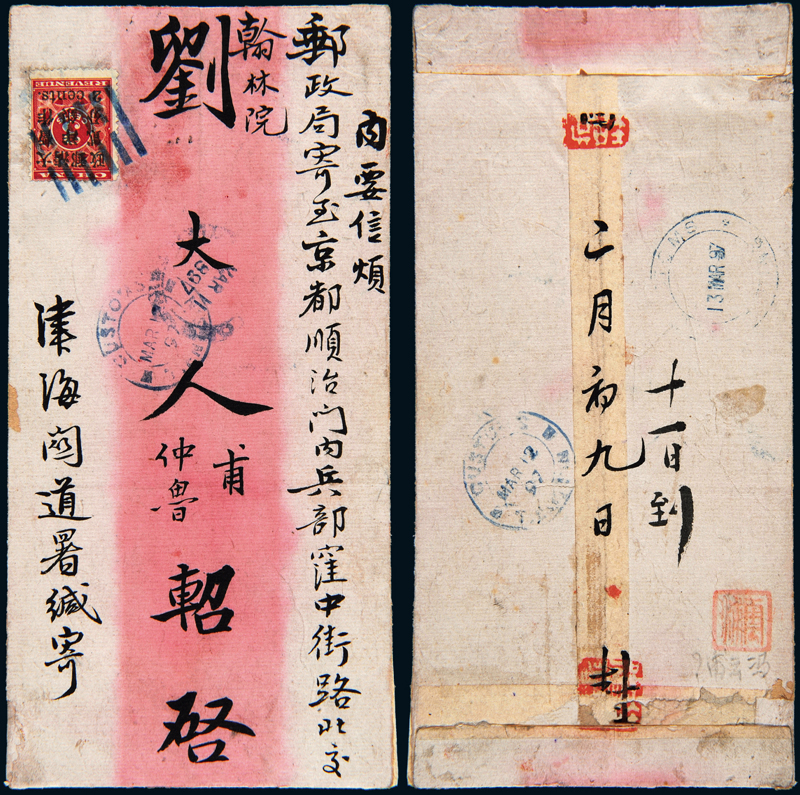 內要信煩
郵政局寄至京都順治門內兵部窪中街路北交
翰林院
劉大人 甫仲魯 軺啓
津海關道署緘寄
CHINA
REVENUE
大清郵政
2 cents.
CUSTOMS
MAR
1897
MAR
97
十一日到
二月初九日
封
CUSTOMS
13 MAR 97
CUSTOMS
MAR 12
97